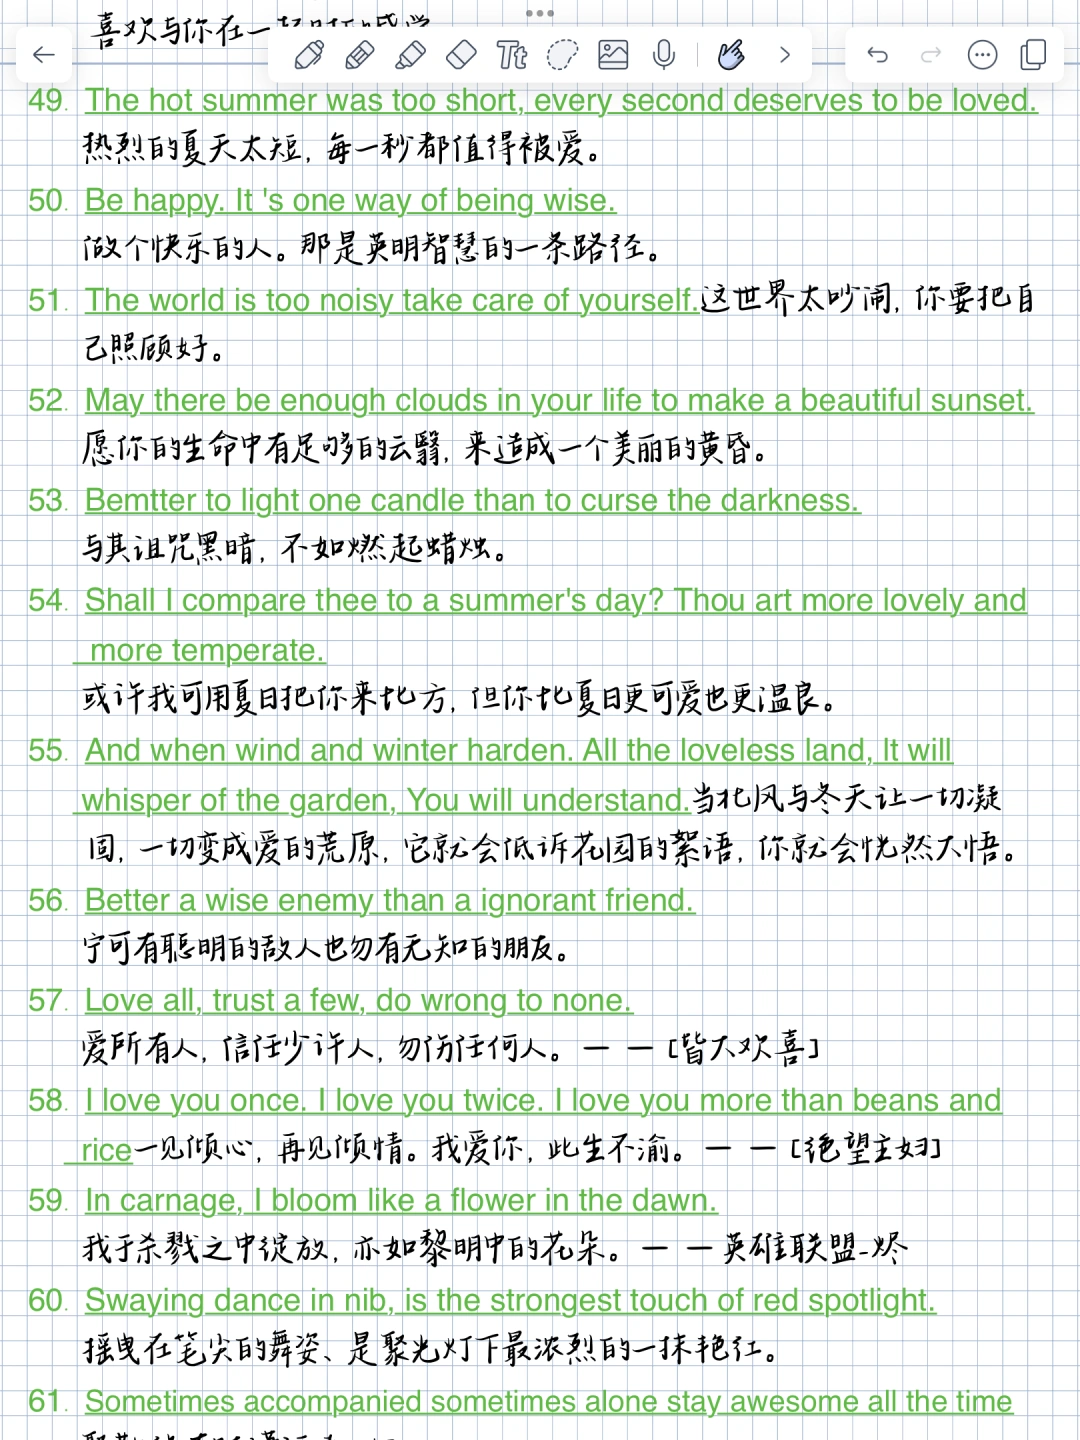 喜欢与你在一起时的感觉
Tt
49. The hot summer was too short, every second deserves to be loved.
热烈的夏天太短, 每一秒都值得被爱。
50. Be happy. It 's one way of being wise.
做个快乐的人。那是英明智慧的一条路径。
51. The world is too noisy take care of yourself.这世界太吵闹, 你要把自
己照顾好。
52. May there be enough clouds in your life to make a beautiful sunset.
愿你的生命中有足够的云翳, 来造成一个美丽的黄昏。
53. Bemtter to light one candle than to curse the darkness.
与其诅咒黑暗, 不如燃起蜡烛。
54. Shall I compare thee to a summer's day? Thou art more lovely and
more temperate.
或许我可用夏日把你来比方, 但你比夏日更可爱也更温良。
55. And when wind and winter harden. All the loveless land, It will
whisper of the garden, You will understand.当北风与冬天让一切凝
固, 一切变成爱的荒原, 它就会低诉花园的絮语, 你就会恍然大悟。
56. Better a wise enemy than a ignorant friend.
宁可有聪明的敌人也勿有无知的朋友。
57. Love all, trust a few, do wrong to none.
爱所有人, 信任少许人, 勿伤任何人。— — [皆大欢喜]
58. I love you once. I love you twice. I love you more than beans and
rice一见倾心, 再见倾情。我爱你, 此生不渝。— — [绝望主妇]
59. In carnage, I bloom like a flower in the dawn.
我于杀戮之中绽放, 亦如黎明中的花朵。— — 英雄联盟-烬
60. Swaying dance in nib, is the strongest touch of red spotlight.
摇曳在笔尖的舞姿、是聚光灯下最浓烈的一抹艳红。
61. Sometimes accompanied sometimes alone stay awesome all the time